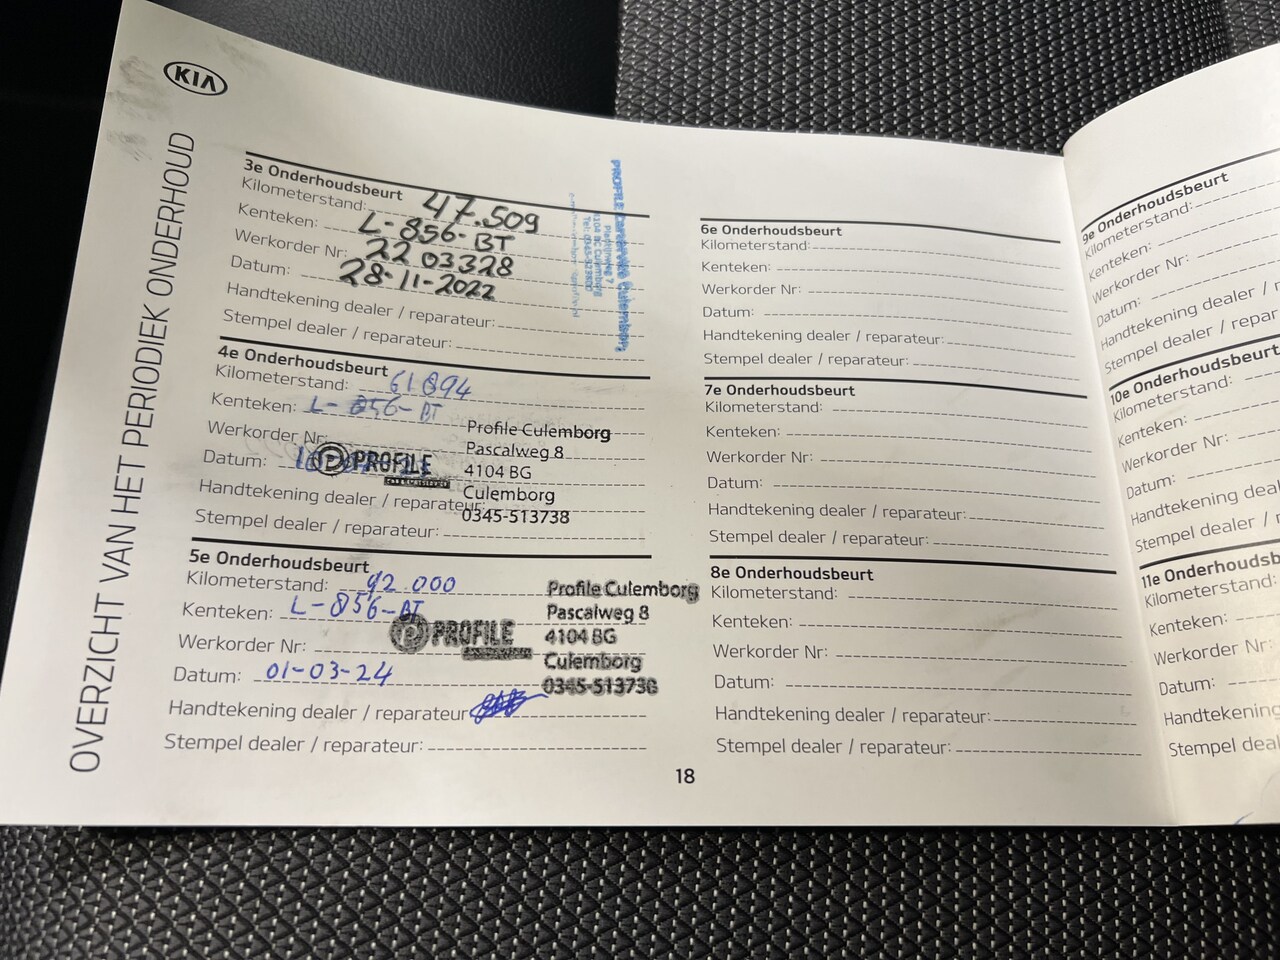 KIA
OVERZICHT VAN HET PERIODIEK ONDERHOUD
3e Onderhoudsbeurt
Kilometerstand: 47.509
Kenteken: L-856-BT
Werkorder Nr: 22 03328
Datum: 28-11-2022
Handtekening dealer / reparateur:
Stempel dealer / reparateur:
PROFILE Culemborg
4104 BC Culemborg
4e Onderhoudsbeurt
Kilometerstand: 61894
Kenteken: L-856-BT
Werkorder Nr:
Datum:
Handtekening dealer / reparateur:
Stempel dealer / reparateur:
PROFILE
Profile Culemborg
Pascalweg 8
4104 BG
Culemborg
0345-513738
5e Onderhoudsbeurt
Kilometerstand: 92.000
Kenteken: L-856-BT
Werkorder Nr:
Datum: 01-03-24
Handtekening dealer / reparateur
Stempel dealer / reparateur:
PROFILE
Profile Culemborg
Pascalweg 8
4104 BG
Culemborg
0345-513738
6e Onderhoudsbeurt
Kilometerstand:
Kenteken:
Werkorder Nr:
Datum:
Handtekening dealer / reparateur:
Stempel dealer / reparateur:
7e Onderhoudsbeurt
Kilometerstand:
Kenteken:
Werkorder Nr:
Datum:
Handtekening dealer / reparateur:
Stempel dealer / reparateur:
8e Onderhoudsbeurt
Kilometerstand:
Kenteken:
Werkorder Nr:
Datum:
Handtekening dealer / reparateur:
Stempel dealer / reparateur:
18
9e Onderhoudsbeurt
Kilometerstand:
Kenteken:
Werkorder Nr:
Datum:
Handtekening dealer / r
Stempel dealer / repar
10e Onderhoudsbeurt
Kilometerstand:
Kenteken:
Werkorder Nr:
Datum:
Handtekening deal
Stempel dealer / r
11e Onderhoudsb
Kilometerstand:
Kenteken:
Werkorder Nr:
Datum:
Handtekening
Stempel deal